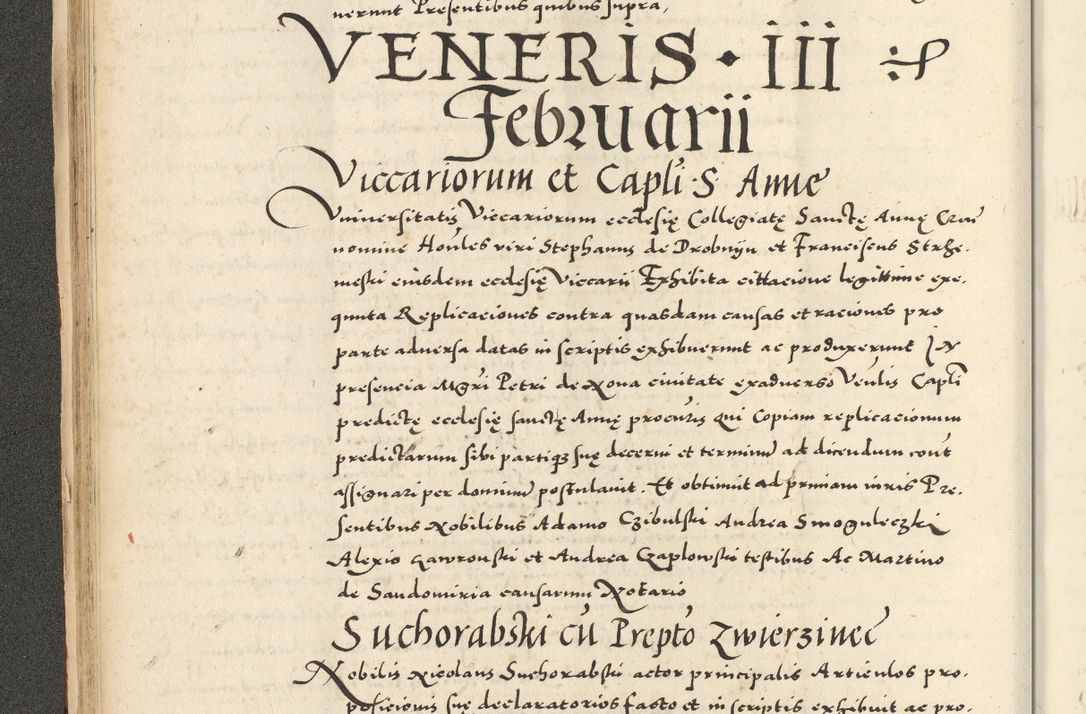 nerunt Presentibus quibus supra,
VENERIS · III
Februarii
Viccariorum et Capli S Anne
Vniuersitatis Viccariorum ecclesię Collegiatę Sanctę Annę Crac
nomine Honles viri Stephanus de Drobnyn et Franciscus Strze.
meski eiusdem ecclesię Viccarii Exhibita cittacione legittime exe.
quuta Replicaciones contra quasdam causas et raciones pro
parte aduersa datas in scriptis exhibuerunt ac produxerunt IN
presencia Mgri Petri de Noua ciuitate exaduerso Venlis Capli
predictę ecclesię sanctę Annę procuris qui Copiam replicacionum
predictarum sibi partiqz suę decerni et terminum ad dicendum cont
assignari per dominum postulauit Et obtinuit ad primam iuris Pre.
sentibus Nobilibus Adamo Czibulski Andrea Smoguleczki
Alexio Gawronski et Andrea Czaplowski testibus Ac Martino
de Sandomiria causarum Notario
Suchorabski cu Prepto Zwierzinec
Nobilis Nicolaus Suchorabski actor principalis Articulos pro.
posicionis suę declaratorios facto et in scriptis exhibuit ac pro.